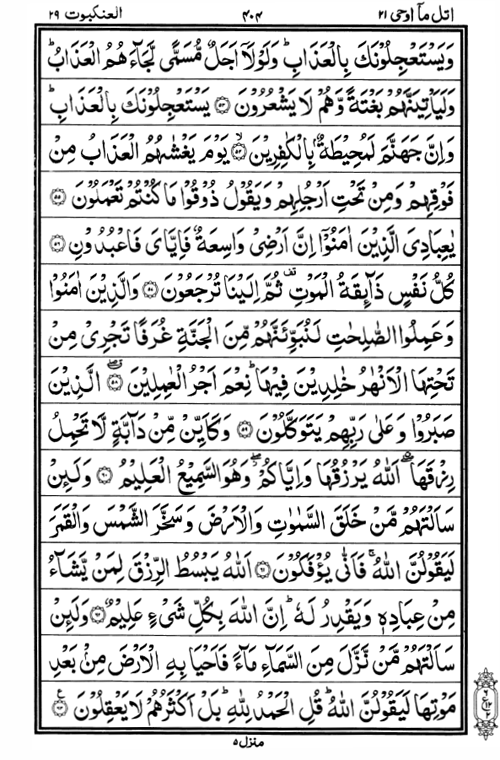 اتل مآ اوحی ۲۱ ۴۰۴ العنکبوت ۲۹
وَيَسْتَعْجِلُوْنَكَ بِالْعَذَابِ ؕ وَلَوْلَاۤ اَجَلٌ مُّسَمًّى لَّجَآءَهُمُ الْعَذَابُ ؕ
وَلَيَاْتِيَنَّهُمْ بَغْتَةً وَّهُمْ لَا يَشْعُرُوْنَ ۝۵۳ يَسْتَعْجِلُوْنَكَ بِالْعَذَابِ ؕ
وَاِنَّ جَهَنَّمَ لَمُحِيْطَةٌۢ بِالْكٰفِرِيْنَ ۝۵۴ۙ يَوْمَ يَغْشٰىهُمُ الْعَذَابُ مِنْ
فَوْقِهِمْ وَمِنْ تَحْتِ اَرْجُلِهِمْ وَيَقُوْلُ ذُوْقُوْا مَا كُنْتُمْ تَعْمَلُوْنَ ۝۵۵
يٰعِبَادِيَ الَّذِيْنَ اٰمَنُوْۤا اِنَّ اَرْضِيْ وَاسِعَةٌ فَاِيَّايَ فَاعْبُدُوْنِ ۝۵۶
كُلُّ نَفْسٍ ذَآئِقَةُ الْمَوْتِ ۫ ثُمَّ اِلَيْنَا تُرْجَعُوْنَ ۝۵۷ وَالَّذِيْنَ اٰمَنُوْا
وَعَمِلُوا الصّٰلِحٰتِ لَنُبَوِّئَنَّهُمْ مِّنَ الْجَنَّةِ غُرَفًا تَجْرِيْ مِنْ
تَحْتِهَا الْاَنْهٰرُ خٰلِدِيْنَ فِيْهَا ؕ نِعْمَ اَجْرُ الْعٰمِلِيْنَ ۝۵۸ۖۗ الَّذِيْنَ
صَبَرُوْا وَعَلٰى رَبِّهِمْ يَتَوَكَّلُوْنَ ۝۵۹ وَكَاَيِّنْ مِّنْ دَآبَّةٍ لَّا تَحْمِلُ
رِزْقَهَا ۖۗ اَللّٰهُ يَرْزُقُهَا وَاِيَّاكُمْ ۖؗ وَهُوَ السَّمِيْعُ الْعَلِيْمُ ۝۶۰ وَلَئِنْ
سَاَلْتَهُمْ مَّنْ خَلَقَ السَّمٰوٰتِ وَالْاَرْضَ وَسَخَّرَ الشَّمْسَ وَالْقَمَرَ
لَيَقُوْلُنَّ اللّٰهُ ۚ فَاَنّٰى يُؤْفَكُوْنَ ۝۶۱ اَللّٰهُ يَبْسُطُ الرِّزْقَ لِمَنْ يَّشَآءُ
مِنْ عِبَادِهٖ وَيَقْدِرُ لَهٗ ؕ اِنَّ اللّٰهَ بِكُلِّ شَيْءٍ عَلِيْمٌ ۝۶۲ وَلَئِنْ
سَاَلْتَهُمْ مَّنْ نَّزَّلَ مِنَ السَّمَآءِ مَآءً فَاَحْيَا بِهِ الْاَرْضَ مِنْۢ بَعْدِ
مَوْتِهَا لَيَقُوْلُنَّ اللّٰهُ ؕ قُلِ الْحَمْدُ لِلّٰهِ ؕ بَلْ اَكْثَرُهُمْ لَا يَعْقِلُوْنَ ۝۶۳ع
منزل ۵